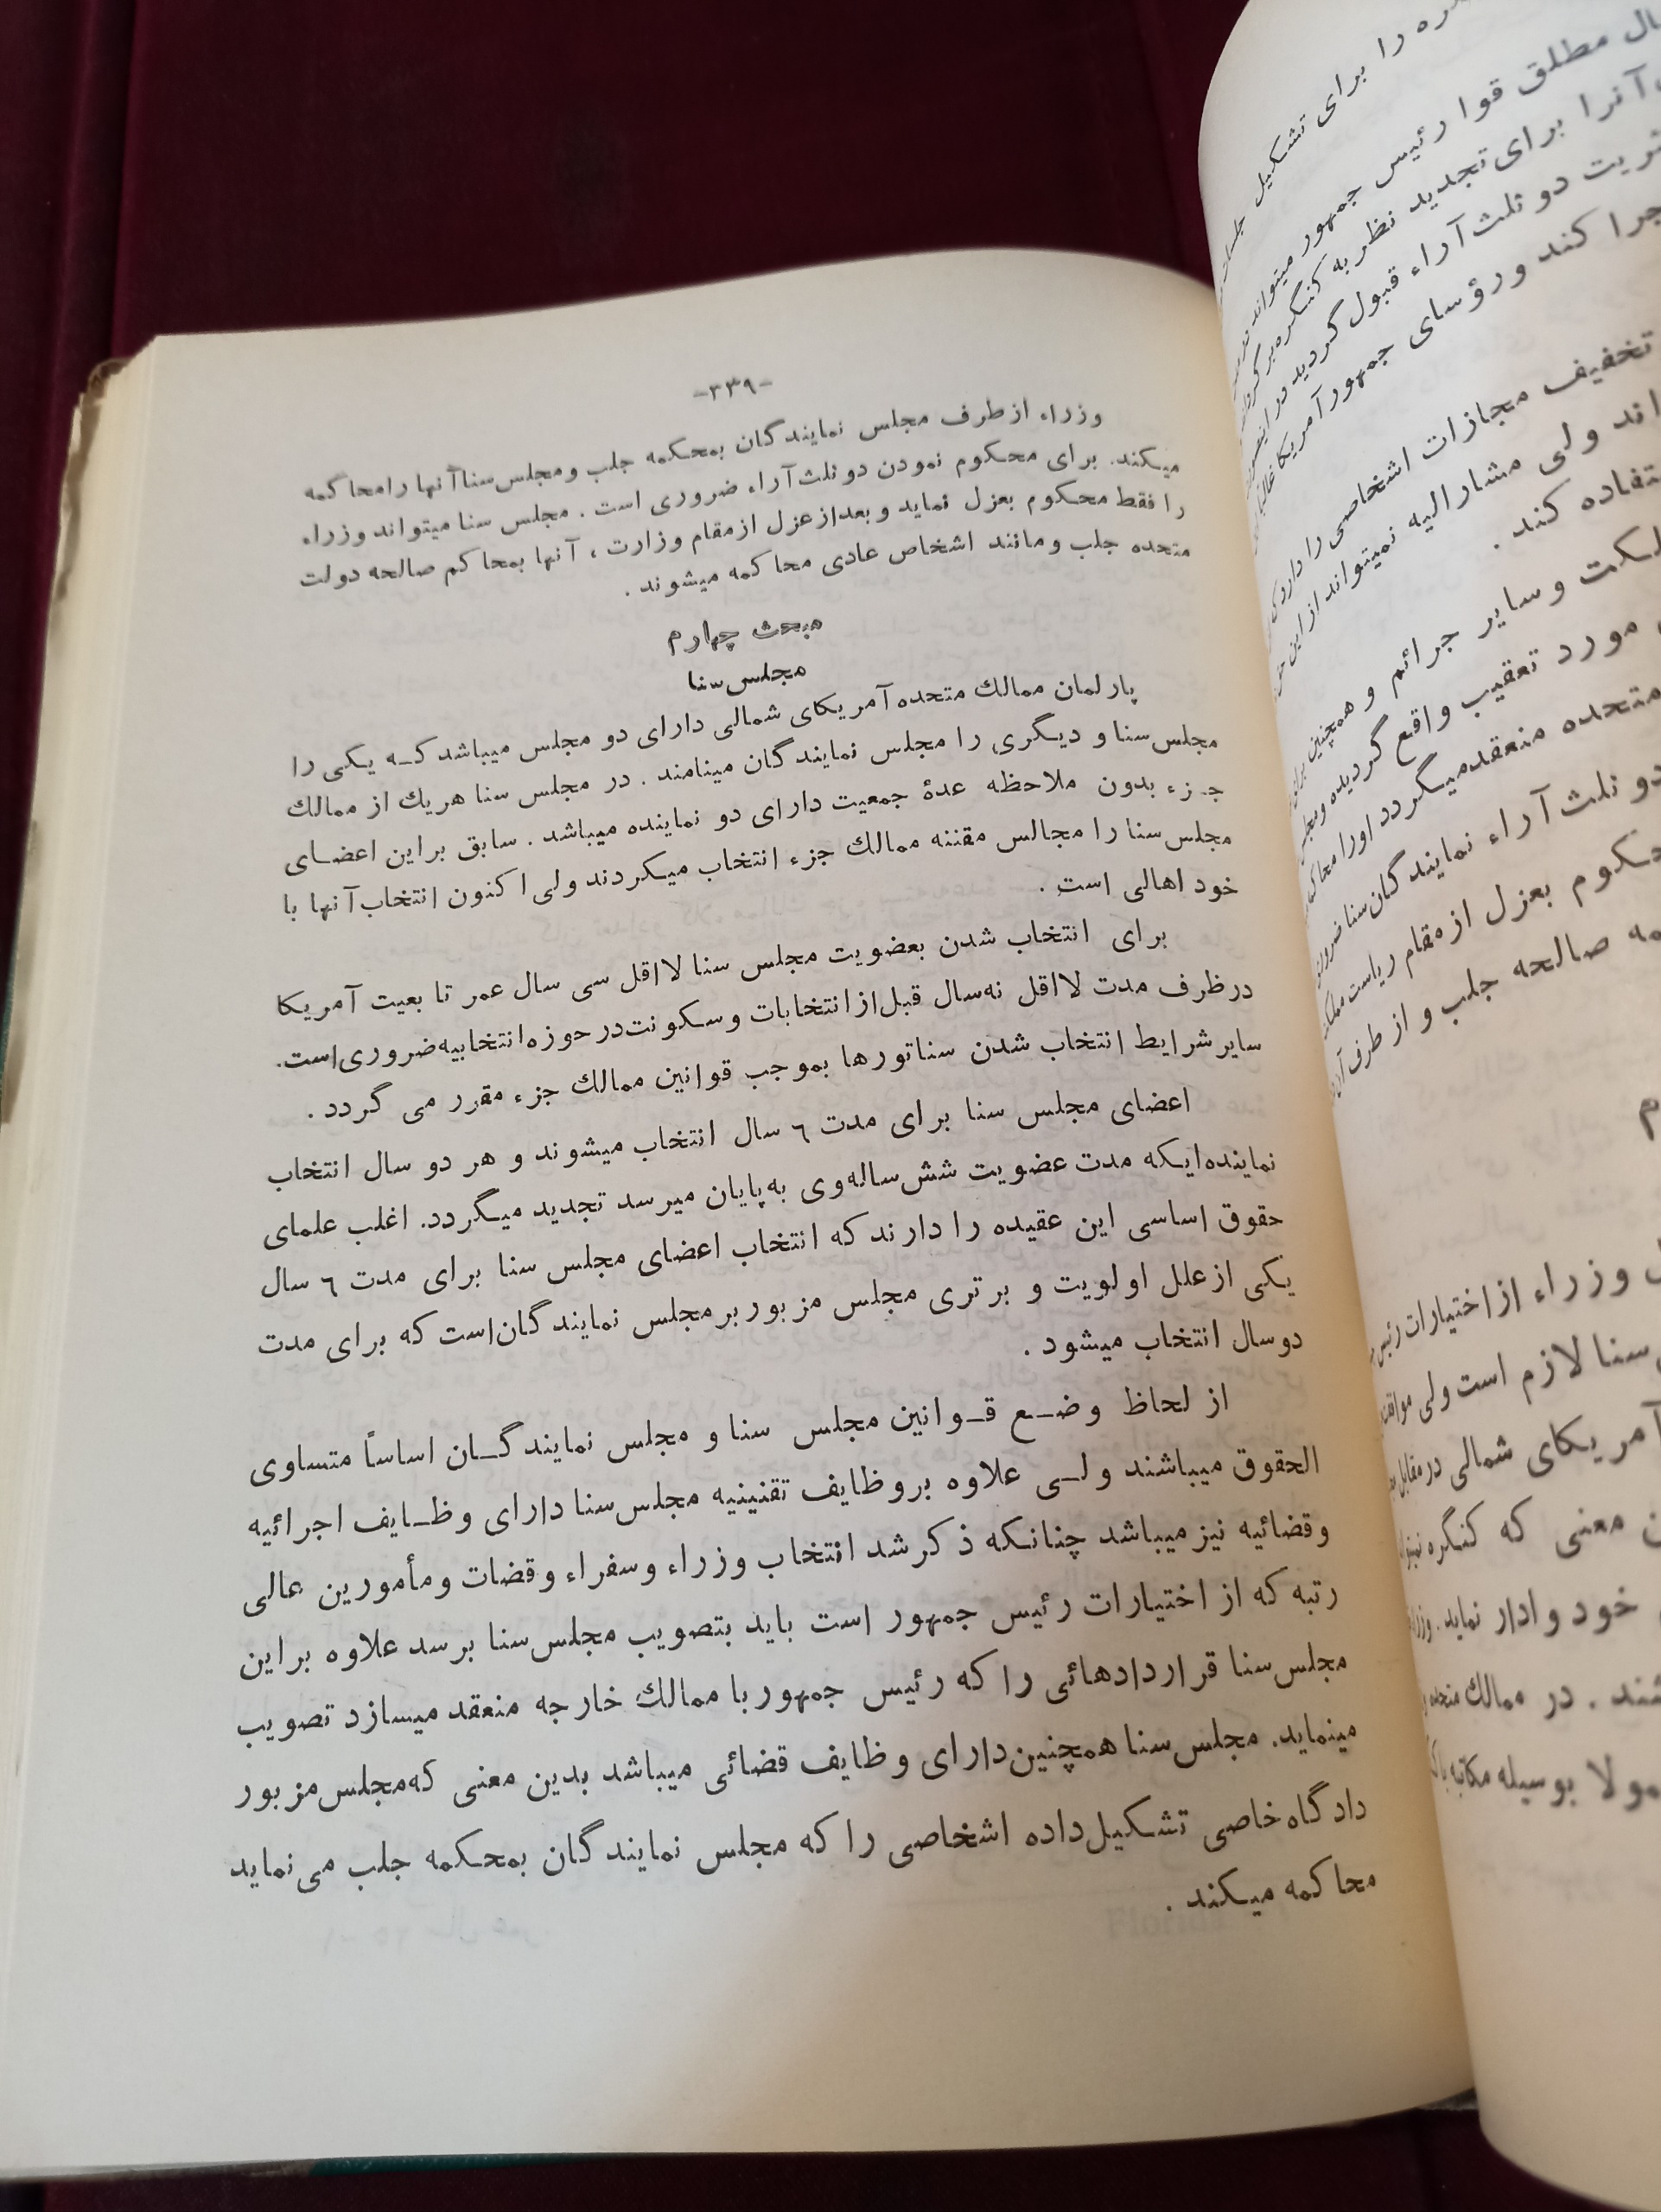 را برای تشکیل جلسات
مطلق قوا رئیس جمهور میتواند
آنرا برای تجدید نظر به کنگره بر
دو ثلث آراء قبول گردید در
کند ورؤسای جمهور آمریکا غالباً
تخفیف مجازات اشخاصی را
ولی مشارالیه نمیتواند از این
کند .
وسایر جرائم و همچنین برای
مورد تعقیب واقع گردیده
متحده منعقد میگردد او را
دو ثلث آراء نمایندگان سنا
بعزل از مقام ریاست
صالحه جلب و از طرف
وزراء از اختیارات رئیس
سنا لازم است ولی
آمریکای شمالی در مقابل
معنی که کنگره
خود وادار نماید .
در ممالک متحده
بوسیله مکاتبه
-۳۳۹-
وزراء از طرف مجلس نمایندگان بمحکمه جلب ومجلس سنا آنها را محاکمه
میکند. برای محکوم نمودن دو ثلث آراء ضروری است . مجلس سنا میتواند وزراء
را فقط محکوم بعزل نماید و بعد از عزل از مقام وزارت ، آنها بمحاکم صالحه دولت
متحده جلب ومانند اشخاص عادی محاکمه میشوند .
مبحث چهارم
مجلس سنا
پارلمان ممالك متحده آمریکای شمالی دارای دو مجلس میباشد که یکی را
مجلس سنا و دیگری را مجلس نمایندگان مینامند . در مجلس سنا هریك از ممالك
جزء بدون ملاحظه عدۀ جمعیت دارای دو نماینده میباشد . سابق براین اعضای
مجلس سنا را مجالس مقننه ممالك جزء انتخاب میکردند ولی اکنون انتخاب آنها با
خود اهالی است .
برای انتخاب شدن بعضویت مجلس سنا لااقل سی سال عمر تابعیت آمریکا
درظرف مدت لااقل نه سال قبل از انتخابات وسکونت در حوزه انتخابیه ضروری است.
سایر شرایط انتخاب شدن سناتورها بموجب قوانین ممالك جزء مقرر می گردد .
اعضای مجلس سنا برای مدت ٦ سال انتخاب میشوند و هر دو سال انتخاب
نماینده ایکه مدت عضویت شش ساله وی به پایان میرسد تجدید میگردد. اغلب علمای
حقوق اساسی این عقیده را دارند که انتخاب اعضای مجلس سنا برای مدت ٦ سال
یکی از علل اولویت و برتری مجلس مزبور بر مجلس نمایندگان است که برای مدت
دوسال انتخاب میشود .
از لحاظ وضع قوانین مجلس سنا و مجلس نمایندگان اساساً متساوی
الحقوق میباشند ولی علاوه بروظایف تقنینیه مجلس سنا دارای وظایف اجرائیه
وقضائیه نیز میباشد چنانکه ذکر شد انتخاب وزراء وسفراء وقضات ومأمورین عالی
رتبه که از اختیارات رئیس جمهور است باید بتصویب مجلس سنا برسد علاوه براین
مجلس سنا قراردادهائی را که رئیس جمهور با ممالك خارجه منعقد میسازد تصویب
مینماید. مجلس سنا همچنین دارای وظایف قضائی میباشد بدین معنی که مجلس مزبور
دادگاه خاصی تشکیل داده اشخاصی را که مجلس نمایندگان بمحکمه جلب می نماید
محاکمه میکند .